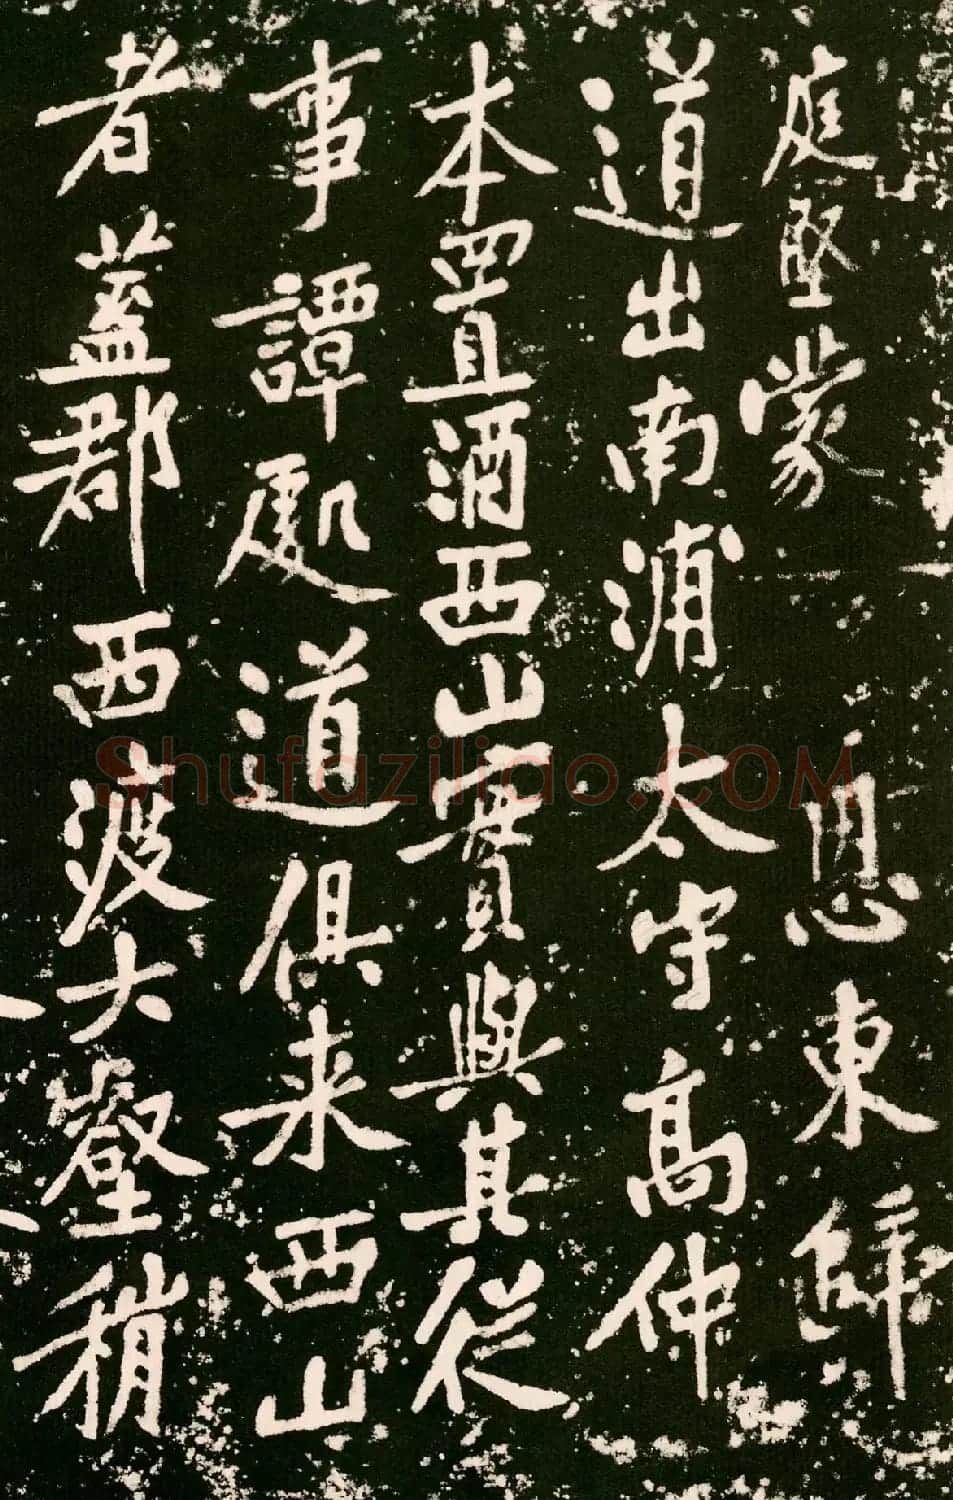 庭堅蒙恩東歸
道出南浦太守高仲
本置酒西山實與其從
事譚處道俱来西山
者蓋郡西渡大壑稍
Shufaziliao.COM